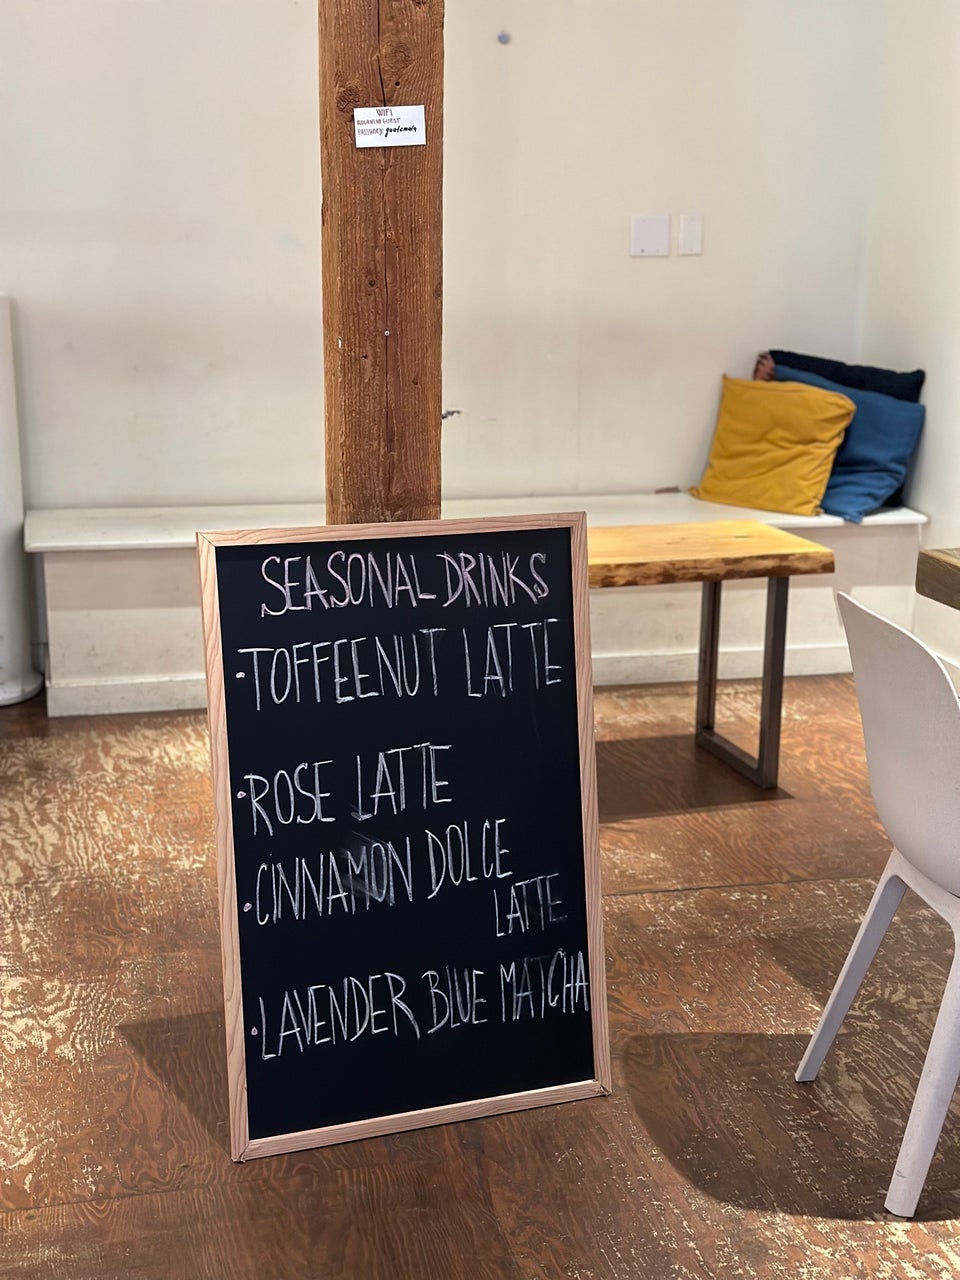 WIFI
GUEST
PASSWORD: guatemala
SEASONAL DRINKS
• TOFFEENUT LATTE
• ROSE LATTE
• CINNAMON DOLCE
LATTE
• LAVENDER BLUE MATCHA